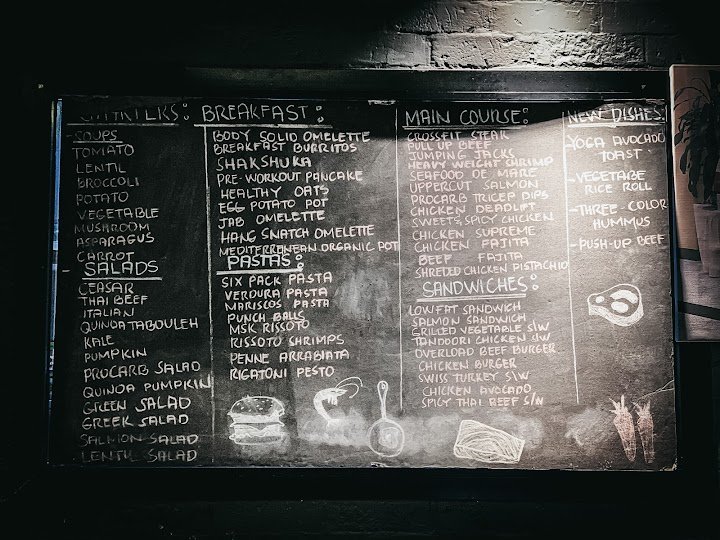 STARTERS:
SOUPS
TOMATO
LENTIL
BROCCOLI
POTATO
VEGETABLE
MUSHROOM
ASPARAGUS
CARROT
- SALADS
CEASAR
THAI BEEF
ITALIAN
QUINOA TABOULEH
KALE
PUMPKIN
PROCARB SALAD
QUINOA PUMPKIN
GREEN SALAD
GREEK SALAD
SALMON SALAD
LENTIL SALAD
BREAKFAST:
BODY SOLID OMELETTE
BREAKFAST BURRITOS
SHAKSHUKA
PRE-WORKOUT PANCAKE
HEALTHY OATS
EGG POTATO POT
JAB OMELETTE
HANG SNATCH OMELETTE
MEDITERRENEAN ORGANIC POT
PASTAS:
SIX PACK PASTA
VERDURA PASTA
MARISCOS PASTA
PUNCH BALLS
MSK RISSOTO
RISSOTO SHRIMPS
PENNE ARRABIATA
RIGATONI PESTO
MAIN COURSE:
CROSSFIT STEAK
PULL UP BEEF
JUMPING JACKS
HEAVY WEIGHT SHRIMP
SEAFOOD DE MARE
UPPERCUT SALMON
PROCARB TRICEP DIPS
CHICKEN DEADLIFT
SWEET & SPICY CHICKEN
CHICKEN SUPREME
CHICKEN FAJITA
BEEF FAJITA
SHREDED CHICKEN PISTACHIO
SANDWICHES:
LOWFAT SANDWICH
SALMON SANDWICH
GRILLED VEGETABLE S/W
TANDOORI CHICKEN S/W
OVERLOAD BEEF BURGER
CHICKEN BURGER
SWISS TURKEY S/W
CHICKEN AVOCADO
SPICY THAI BEEF S/W
NEW DISHES:
-YOGA AVOCADO
TOAST
-VEGETABLE
RICE ROLL
-THREE-COLOR
HUMMUS
-PUSH-UP BEEF